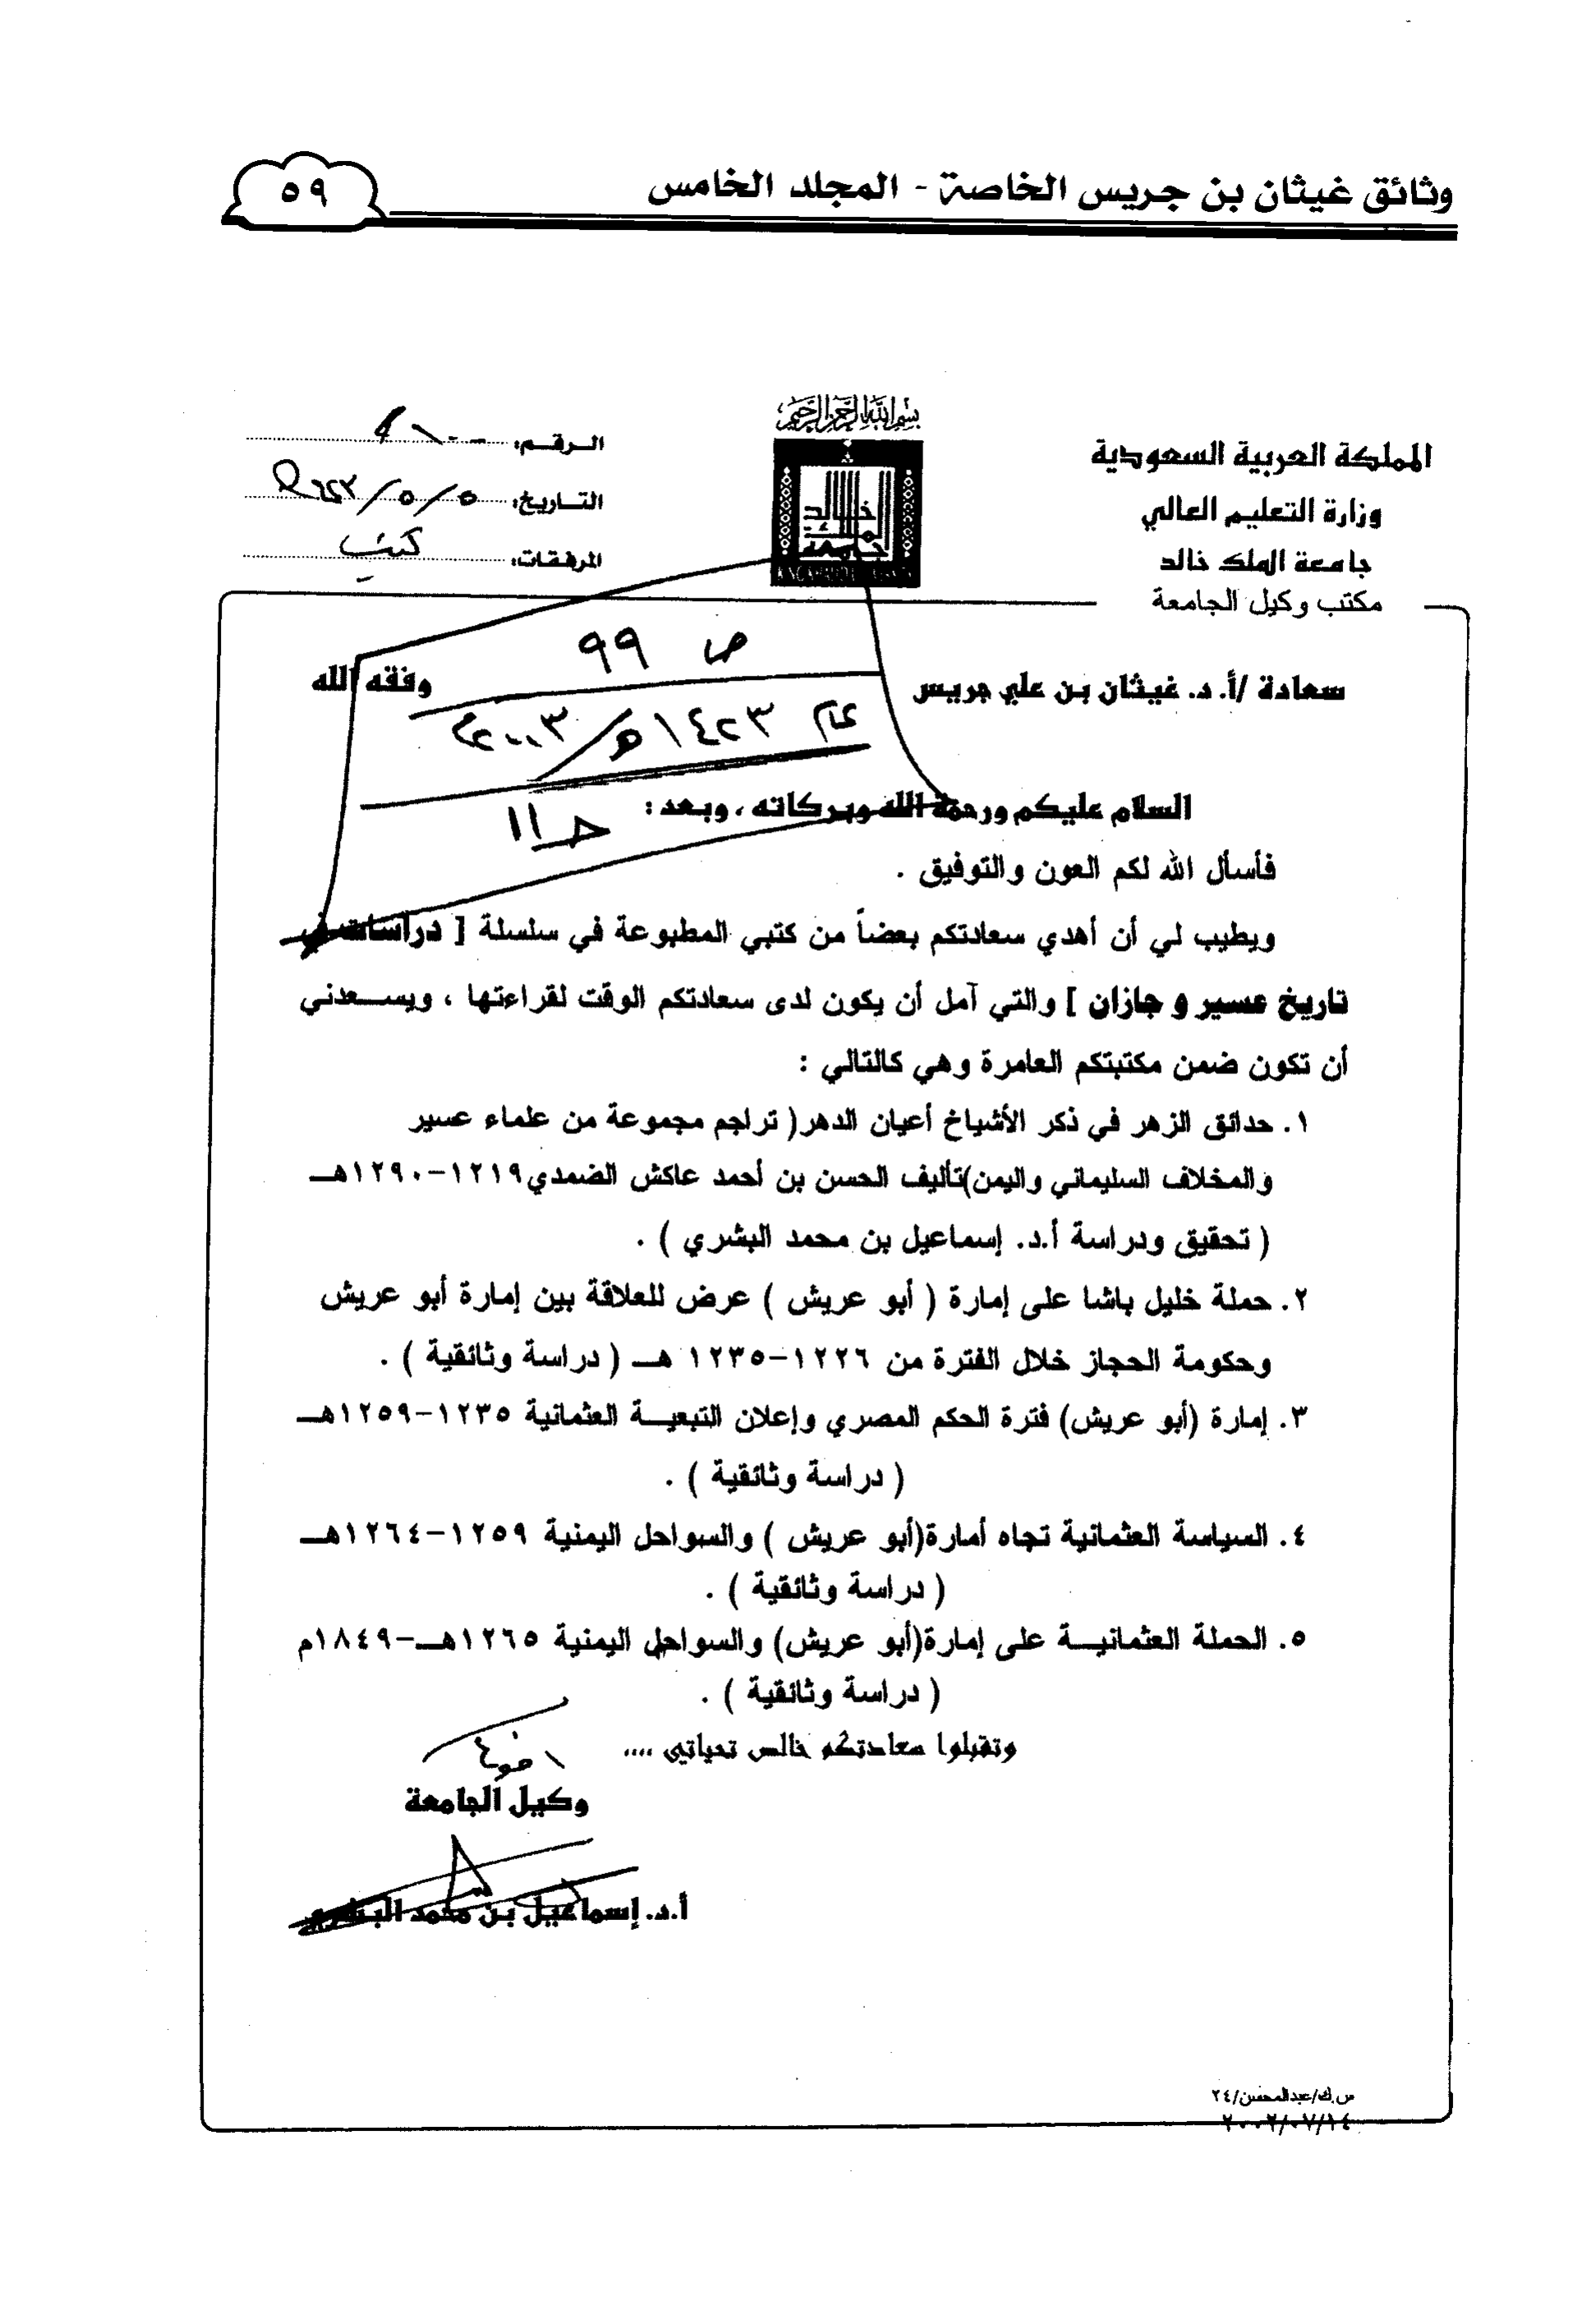 وثائق غيثان بن جريس الخاصة - المجلد الخامس
٥٩
بسم الله الرحمن الرحيم
المملكة العربية السعودية
وزارة التعليم العالي
جامعة الملك خالد
مكتب وكيل الجامعة
جامعة الملك خالد
الرقم:
التاريخ: ٥/٥/
المرفقات: كتب
ص ٩٩
عام ١٤٢٣هـ/٢٠٠٣م
حـ ١١
سعادة /أ. د. غيثان بن علي جريس وفقه الله
السلام عليكم ورحمة الله وبركاته ، وبعد :
فأسأل الله لكم العون والتوفيق .
ويطيب لي أن أهدي سعادتكم بعضاً من كتبي المطبوعة في سلسلة [ دراسات في
تاريخ عسير و جازان ] والتي آمل أن يكون لدى سعادتكم الوقت لقراءتها ، ويسعدني
أن تكون ضمن مكتبتكم العامرة وهي كالتالي :
١. حدائق الزهر في ذكر الأشياخ أعيان الدهر( تراجم مجموعة من علماء عسير
والمخلاف السليماني واليمن)تأليف الحسن بن أحمد عاكش الضمدي١٢١٩-١٢٩٠هـ
( تحقيق ودراسة أ.د. إسماعيل بن محمد البشري ) .
٢. حملة خليل باشا على إمارة ( أبو عريش ) عرض للعلاقة بين إمارة أبو عريش
وحكومة الحجاز خلال الفترة من ١٢٢٦-١٢٣٥ هـ ( دراسة وثائقية ) .
٣. إمارة (أبو عريش) فترة الحكم المصري وإعلان التبعية العثمانية ١٢٣٥-١٢٥٩هـ
( دراسة وثائقية ) .
٤. السياسة العثمانية تجاه أمارة(أبو عريش ) والسواحل اليمنية ١٢٥٩-١٢٦٤هـ
( دراسة وثائقية ) .
٥. الحملة العثمانية على إمارة(أبو عريش) والسواحل اليمنية ١٢٦٥هـ-١٨٤٩م
( دراسة وثائقية ) .
وتقبلوا سعادتكم خالص تحياتي ....
وكيل الجامعة
أ.د. إسماعيل بن محمد البشري
س.ك/عبدالمحسن/٢٤
٢٠٠٢/٠٧/١٤